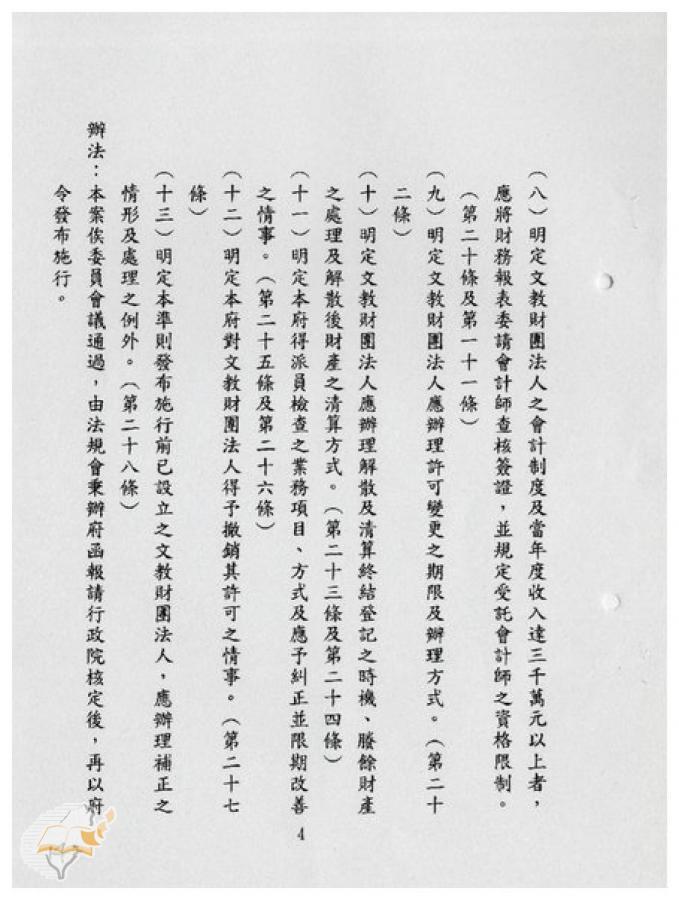 （八）明定文教財團法人之會計制度及當年度收入達三千萬元以上者，
應將財務報表委請會計師查核簽證，並規定受託會計師之資格限制。
（第二十條及第一十一條）
（九）明定文教財團法人應辦理許可變更之期限及辦理方式。（第二十
二條）
（十）明定文教財團法人應辦理解散及清算終結登記之時機、賸餘財產
之處理及解散後財產之清算方式。（第二十三條及第二十四條）
（十一）明定本府得派員檢查之業務項目、方式及應予糾正並限期改善
之情事。（第二十五條及第二十六條）
（十二）明定本府對文教財團法人得予撤銷其許可之情事。（第二十七
條）
（十三）明定本準則發布施行前已設立之文教財團法人，應辦理補正之
情形及處理之例外。（第二十八條）
辦法：本案俟委員會議通過，由法規會秉辦府函報請行政院核定後，再以府
令發布施行。
4